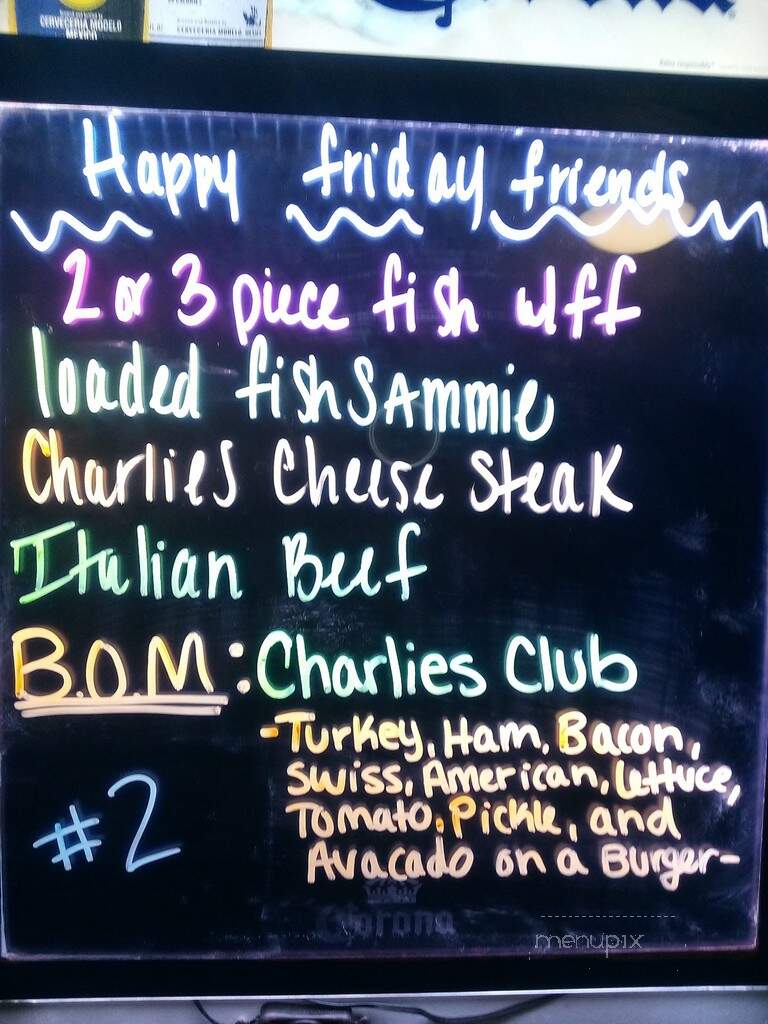 CERVECERIA MODELO
MEXICO
CERVECERIA MODELO
Happy friday friends
2 or 3 piece fish w/ ff
loaded fish SAmmie
Charlies Cheese Steak
Italian Beef
B.O.M: Charlies Club
-Turkey, Ham, Bacon,
Swiss, American, Lettuce,
Tomato, Pickle, and
Avacado on a Burger-
#2
Corona
menupix